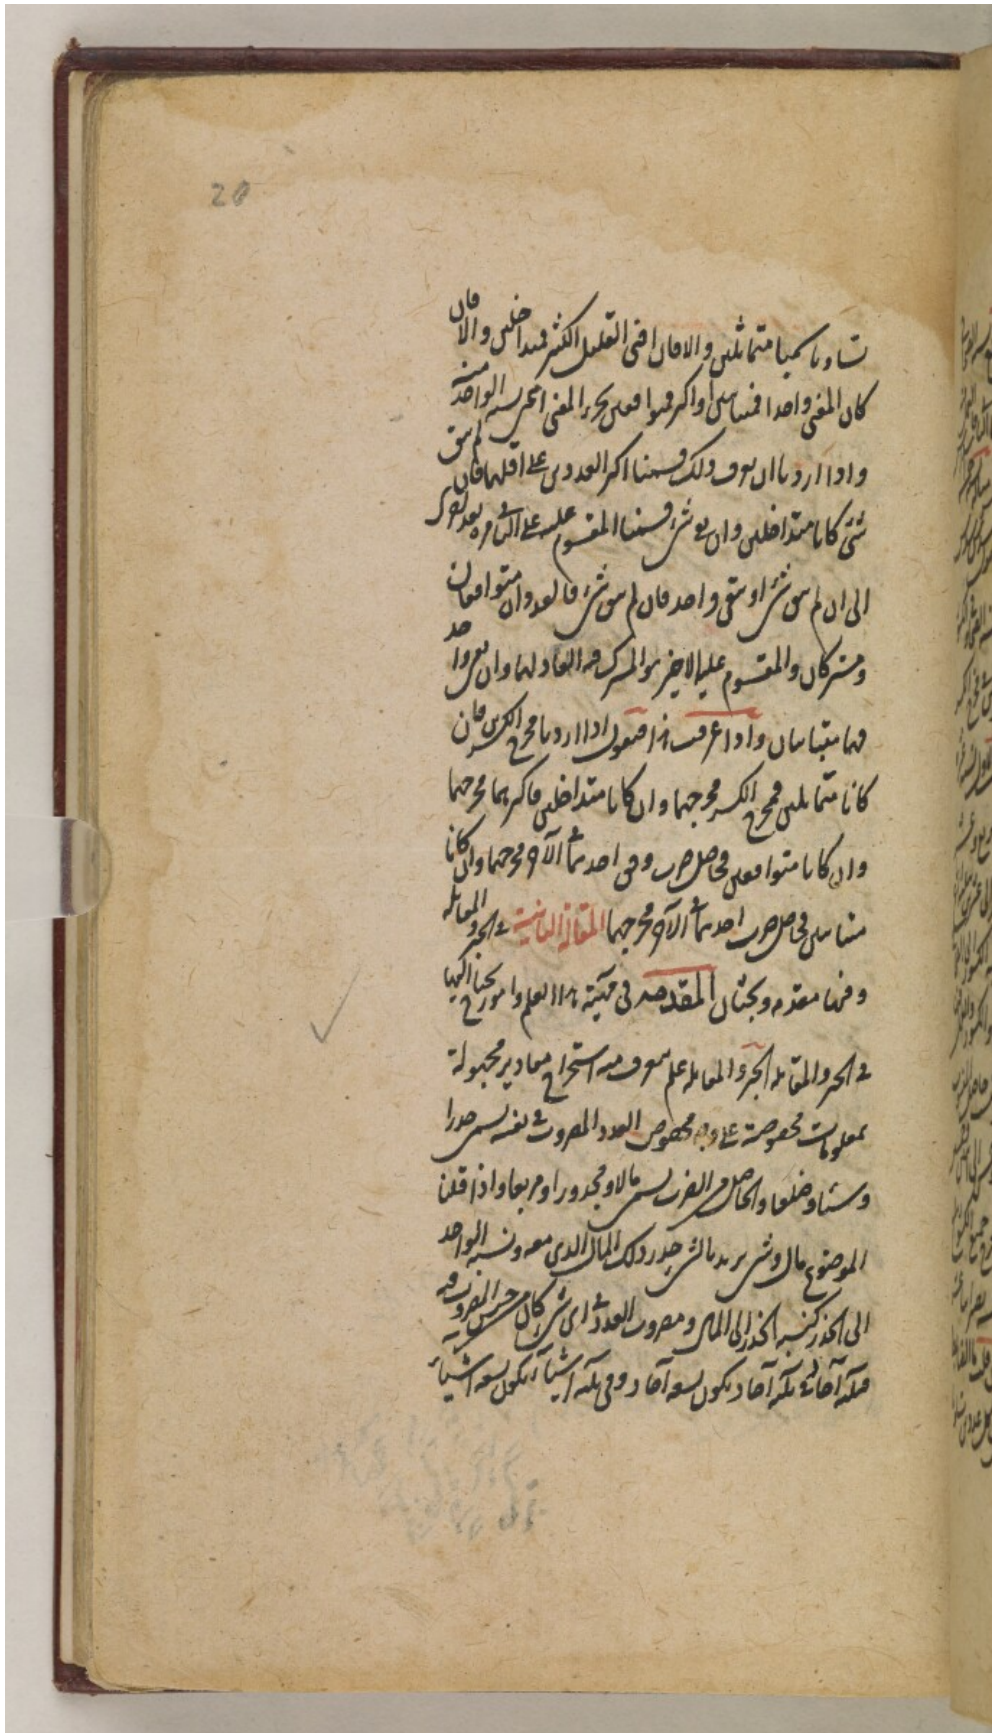 20
تساويا سميا متماثلين والا فان افنى القليل الكثير فمتداخلين والا فان
كان المفنى واحدا فمتباينين او اكثر فمتوافقين بجزء المفنى اعنى نسبة الواحد منه
واذا اردنا ان نعرف ذلك قسمنا اكثر العددين على اقلهما فان لم يبق
شئ كانا متداخلين وان بقى شئ قسمنا المقسوم عليه على الباقى مرة بعد اخرى
الى ان لم يبق شئ او يبقى واحد فان لم يبق شئ فالعددان متوافقان
ومشتركان والمقسوم عليه الاخير هو المشترك فيه العاد لهما وان بقى واحد
فهما متباينان واذا عرفت هذا فنقول اذا اردنا مخرج الكسرين فان
كانا متماثلين فمخرج الكسر مخرجهما وان كانا متداخلين فاكبرهما مخرجهما
وان كانا متوافقين فحاصل ضرب وفق احدهما فى الآخر مخرجهما وان كانا
متباينين فحاصل ضرب احدهما فى الآخر مخرجهما المقالة الثانية فى الجبر والمقابلة
وفيها مقدمه وبحثان المقدمه فى هذا العلم وامور يحتاج اليها
فى الجبر والمقابلة الجبر والمقابله علم يتعرف منه استخراج مقادير مجهولة
بمعلومات مخصوصة على وجه مخصوص العدد المضروب فى نفسه يسمى جذرا
وشيئا وضلعا والحاصل من الضرب يسمى مالا ومجذورا ومربعا واذا قلنا
الموضوع مال وشئ نريد بالشئ جذر ذلك المال الذى معه ونسبة الواحد
الى الجذر كنسبة الجذر الى المال ومضروب العدد فى اى شئ كان من جنس المضروب فيه
فثلثة آحاد فى ثلثة آحاد يكون تسعة آحاد وفى ثلثة اشياء يكون تسعة اشياء